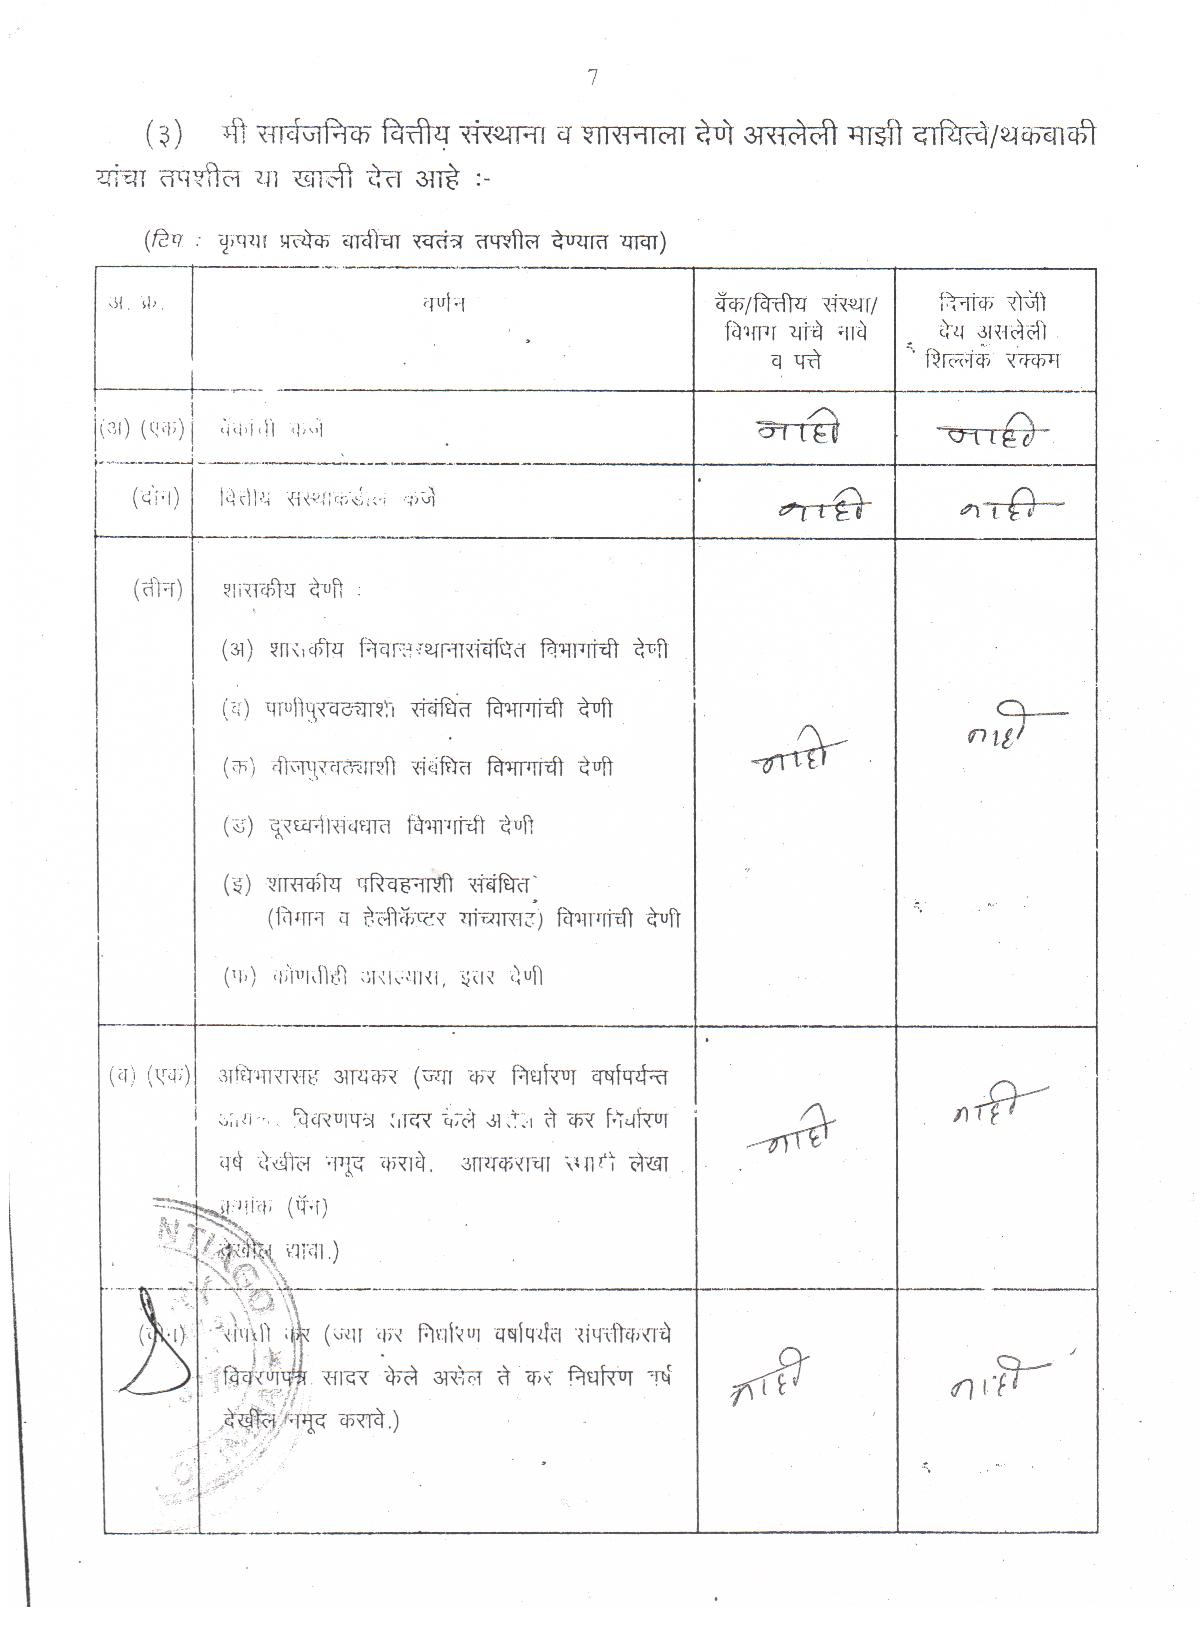 7
(३) मी सार्वजनिक वित्तीय संस्थाना व शासनाला देणे असलेली माझी दायित्वे/थकबाकी
यांचा तपशील या खाली देत आहे :-
(टिप : कृपया प्रत्येक बाबींचा स्वतंत्र तपशील देण्यात यावा)
अ. क्र.
वर्णन
बँक/वित्तीय संस्था/
विभाग यांचे नावे
व पत्ते
दिनांक रोजी
देय असलेली
शिल्लक रक्कम
(अ) (एक) बँकांची कर्जे नाही नाही
(दोन) वित्तीय संस्थाकडील कर्जे नाही नाही
(तीन) शासकीय देणी :
(अ) शासकीय निवासस्थानासंबंधित विभागांची देणी
(ब) पाणीपुरवठ्याशी संबंधित विभागांची देणी
नाही नाही
(क) वीजपुरवठ्याशी संबंधित विभागांची देणी
(ड) दूरध्वनीसंबधात विभागांची देणी
(इ) शासकीय परिवहनाशी संबंधित
(विमान व हेलीकॅप्टर यांच्यासह) विभागांची देणी
(फ) कोणतीही असल्यास, इतर देणी
(ब) (एक) अधिभारासह आयकर (ज्या कर निर्धारण वर्षापर्यन्त
आयकर विवरणपत्र सादर केले असेल ते कर निर्धारण
वर्ष देखील नमूद करावे. आयकराचा स्थायी लेखा
क्रमांक (पॅन)
देखील द्यावा.)
नाही नाही
(दोन) संपत्ती कर (ज्या कर निर्धारण वर्षापर्यंत संपत्तीकराचे
विवरणपत्र सादर केले असेल ते कर निर्धारण वर्ष
देखील नमूद करावे.)
नाही नाही
NTIAGO